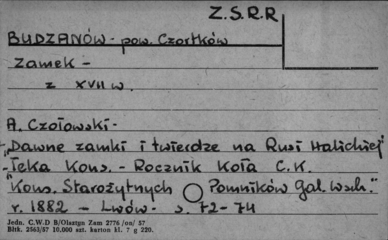 Z.S.R.R
BUDZANÓW - pow. Czortków
Zamek -
z XVII w.
A. Czołowski -
"Dawne zamki i twierdze na Rusi Halickiej"
- Teka Kons. - Rocznik Koła C.K.
"Kons. Starożytnych Pomników Gal. wsch."
r. 1882 - Lwów - s. 72 - 74
Jedn. C.W.D B/Olsztyn Zam 2776 /on/ 57
Bltk. 2563/57 10.000 szt. karton kl. 7 g 220.